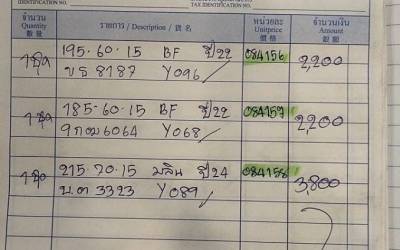 IDENTIFICATION
TAX IDENTIFICATION
จำนวน รายการ / Description / 貨 名 หน่วยละ จำนวนเงิน
Quantity Unitprice Amount
數 量 價 格 銀 額
1 ชุด 195-60-15 BF ปี22 084156 2,200
ขธ 8187 Y096
1 ชุด 185-60-15 BF ปี22 084157 2,200
9กฒ6064 Y068
1 ชุด 215-70-15 มลิน ปี24 084158 3,800
บต 3323 Y089